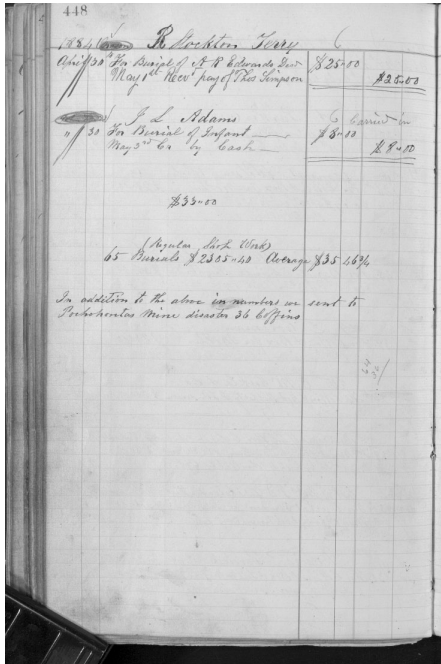 448
1884 R Stockton Terry
April 30 For Burial of A R Edwards $25.00
May 1st Recd pay of Thos Simpson $25.00
J L Adams Carried in
" 30 For Burial of Infant $8.00
May 3rd Cr by Cash $8.00
$33.00
(Regular Work)
65 Burials $2305.40 Average $35 46 3/4
In addition to the above in numbers we sent to
Pochohontas Mine disaster 36 Coffins